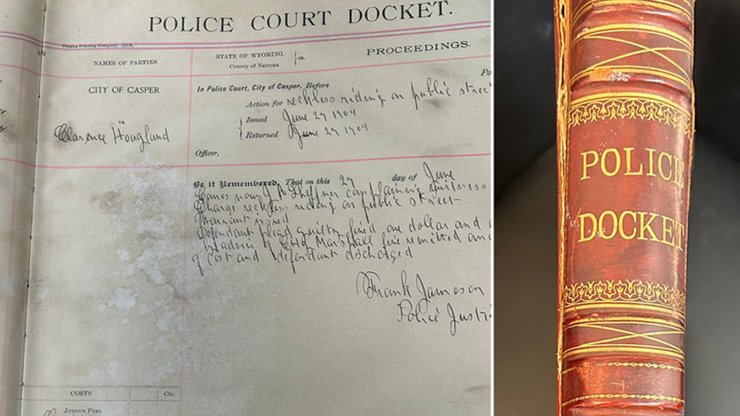 POLICE COURT DOCKET.
Omaha Printing Company
NAMES OF PARTIES
STATE OF WYOMING,
County of Natrona
ss.
PROCEEDINGS.
CITY OF CASPER
vs
Clarence Hoagland
In Police Court, City of Casper, Before
Po
Action for reckless riding on public stree
Issued June 27 1904
Returned June 27 1904
Officer.
Be it Remembered, That on this 27 day of June
Comes now Sheffner complaining witness
Charge reckless riding on public street
Warrant issued
Defendant plead guilty fined one dollar and c
by advice of City Marshall fine remitted on
of cost and defendant discharged
Frank Jameson
Police Justi
COSTS
$
Cts.
JUSTICE FEES
POLICE
DOCKET